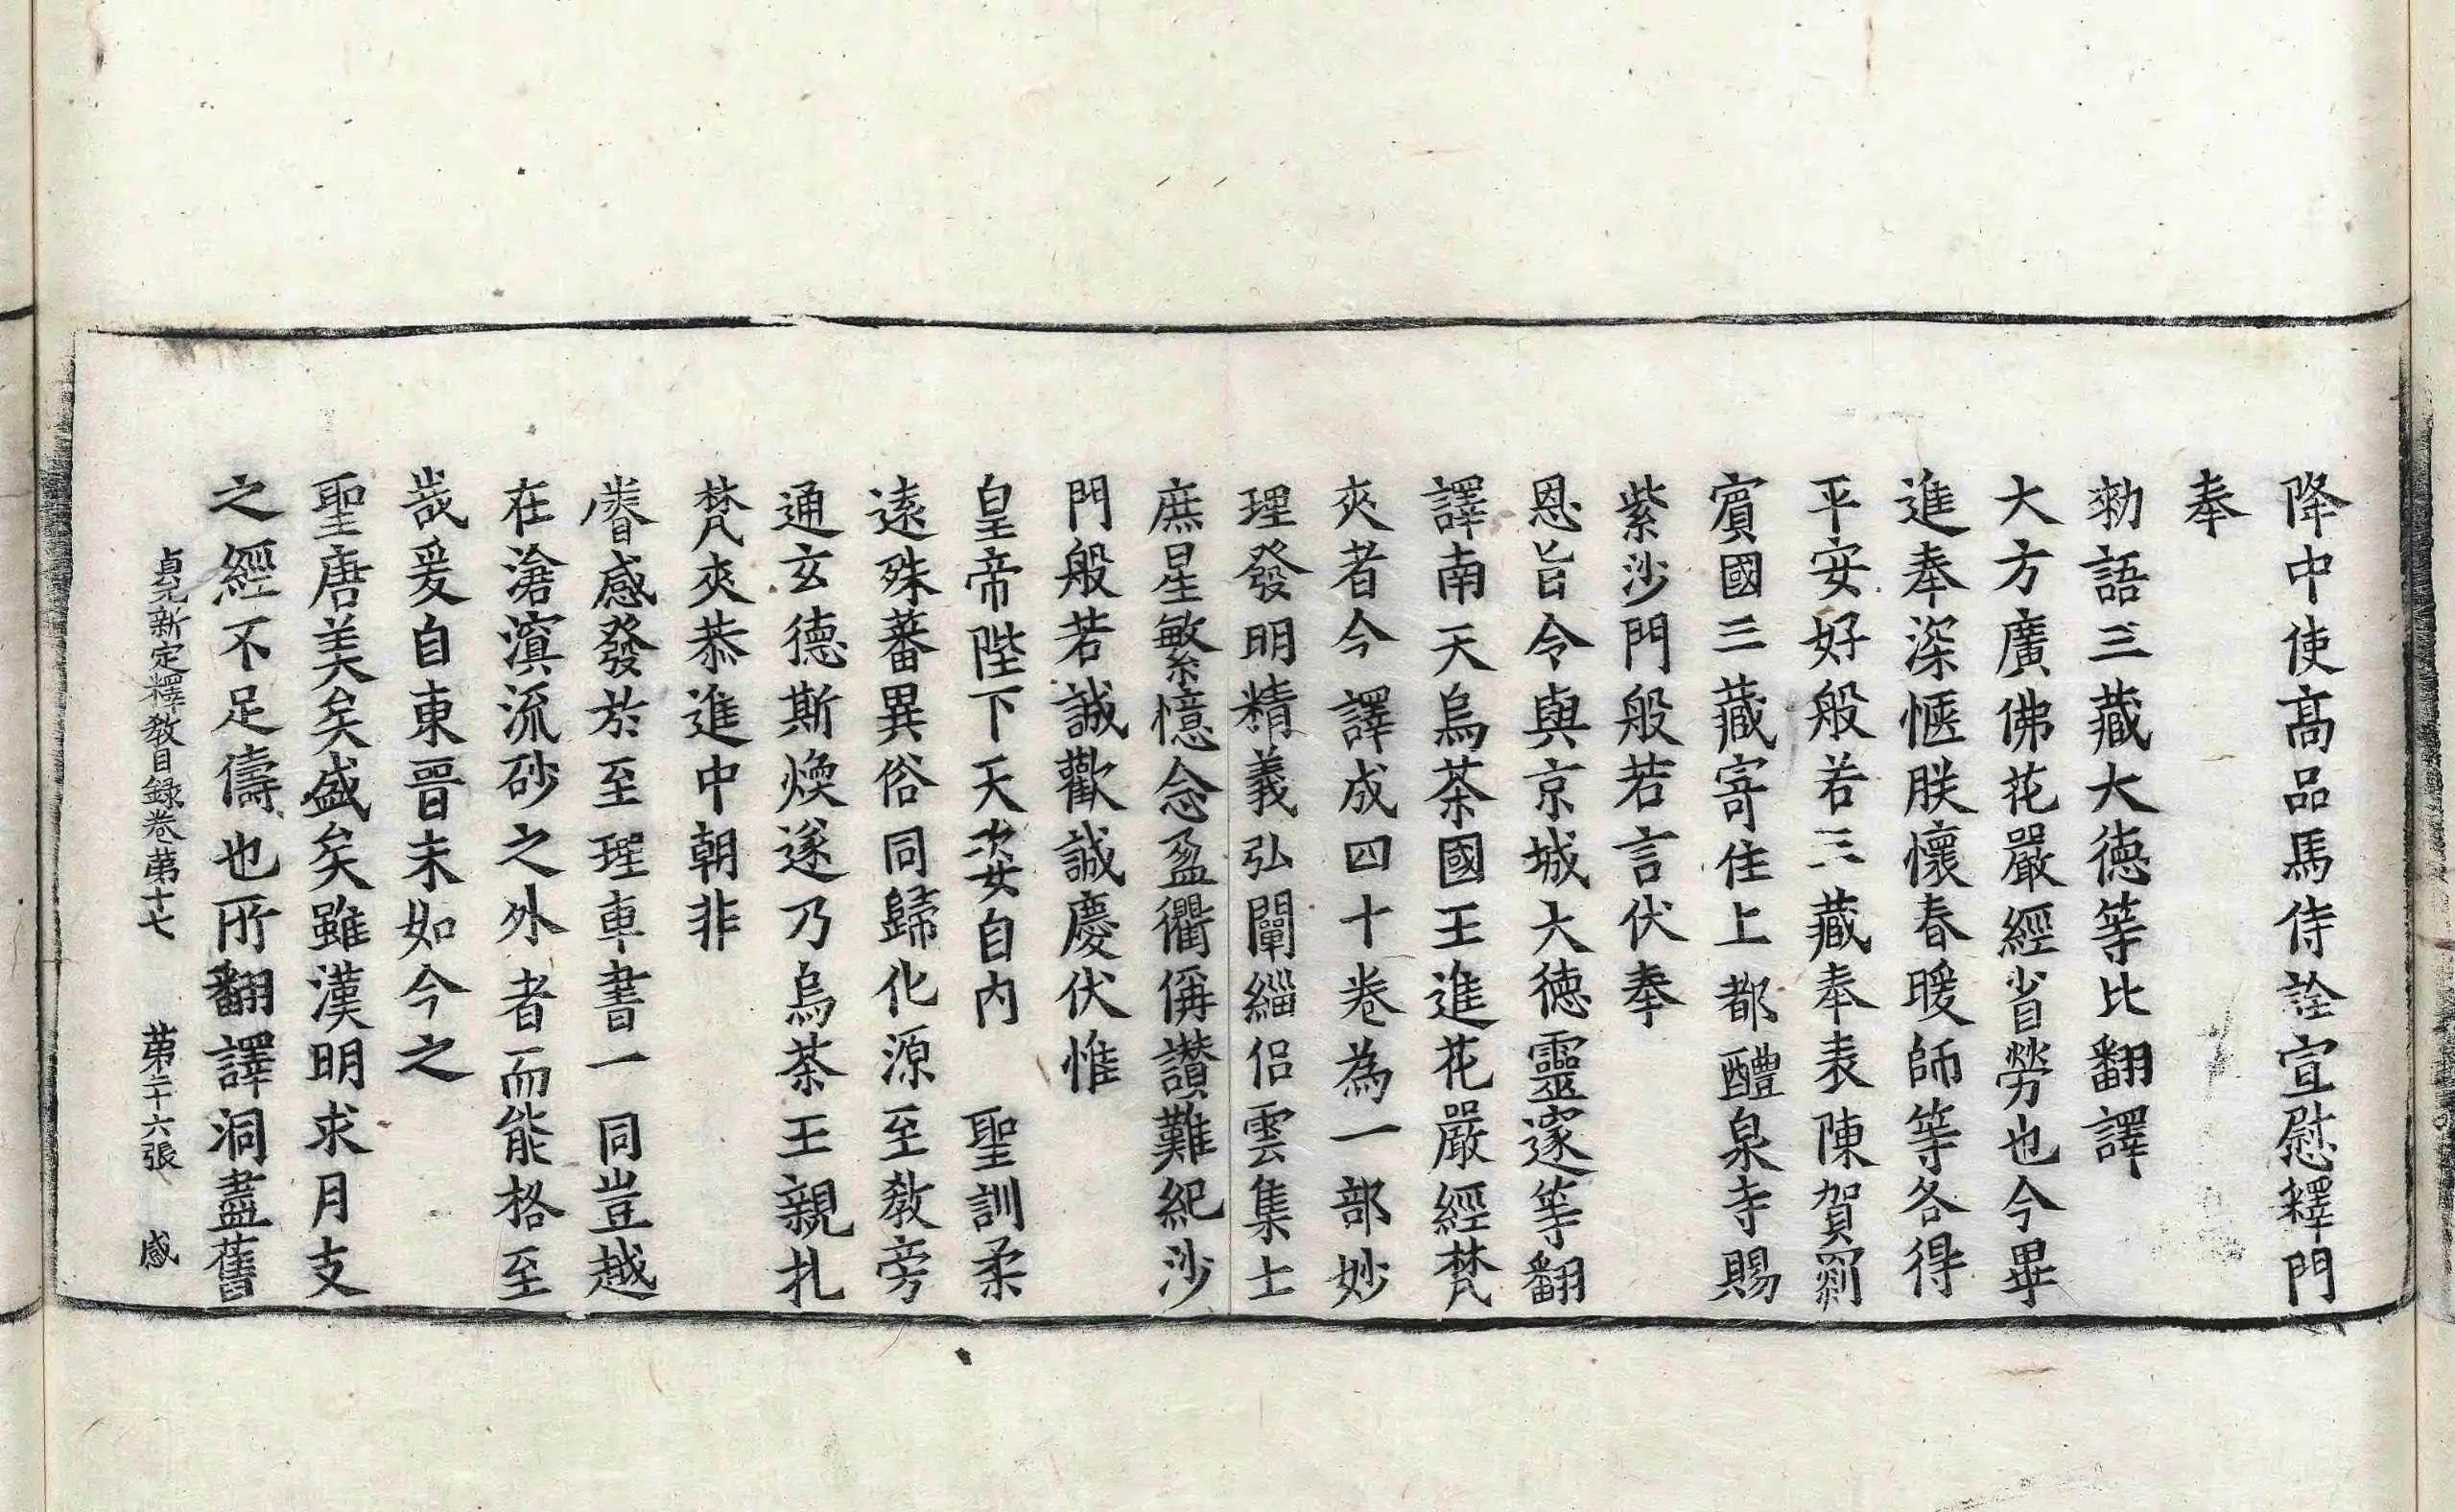 降中使高品馬侍詮宣慰釋門
奉
勑語三藏大德等比翻譯
大方廣佛花嚴經省勞也今畢
進奉深愜朕懷春暖師等各得
平安好般若三藏奉表陳賀罽
賓國三藏寄住上都醴泉寺賜
紫沙門般若言伏奉
恩旨令與京城大德靈邃等翻
譯南天烏茶國王進花嚴經梵
夾者今譯成四十卷為一部妙
理發明精義弘闡緇侶雲集士
庶星繁憶念盈衢偁讚難紀沙
門般若誠歡誠慶伏惟
皇帝陛下天姿自內 聖訓柔
遠殊蕃異俗同歸化源至教旁
通玄德斯煥遂乃烏茶王親扎
梵夾恭進中朝非
睠感發於至理車書一同豈越
在滄溟流砂之外者而能格至
哉爰自東晉未如今之
聖唐美矣盛矣雖漢明求月支
之經不足儔也所翻譯洞盡舊
貞元新定釋教目録卷苐十七 苐二十六張 感